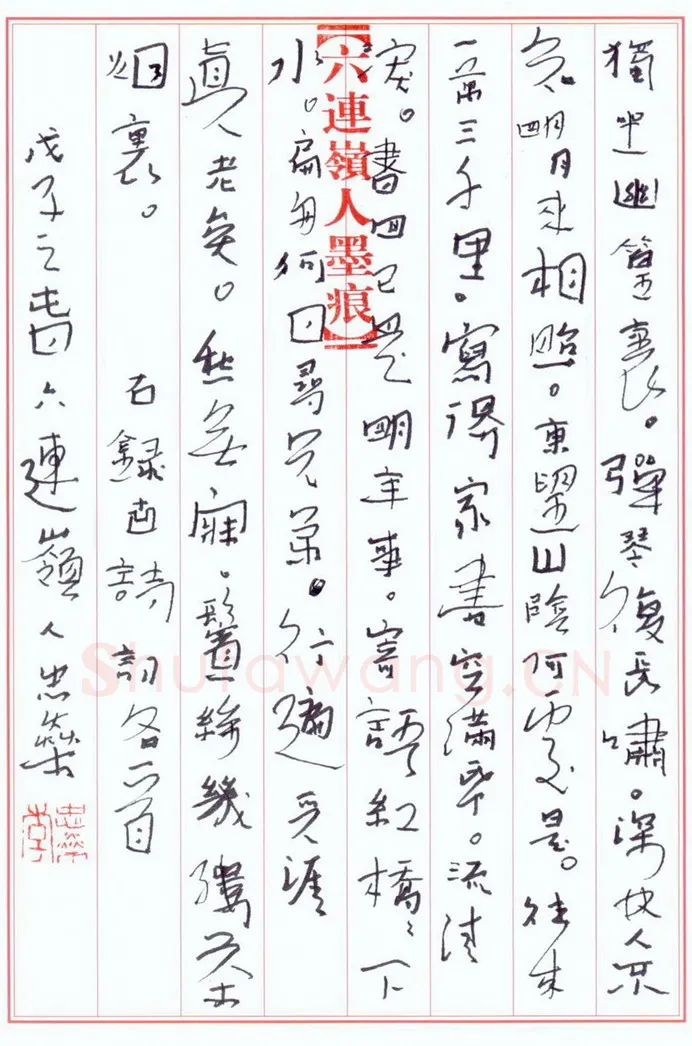 獨坐幽篁裏。彈琴復長嘯。深林人不
知。明月來相照。東望山陰何處是。往來
一萬三千里。寫得家書空滿紙。流清
淚。書回已是明年事。寄語紅橋〻下
水。扁舟何日尋兄弟。行遍天涯
真老矣。愁無寐。鬢絲幾縷茶
烟裏。 右錄古詩詞各一首
戊子之春六連嶺人忠
【六連嶺人墨痕】
Shufawang.CN